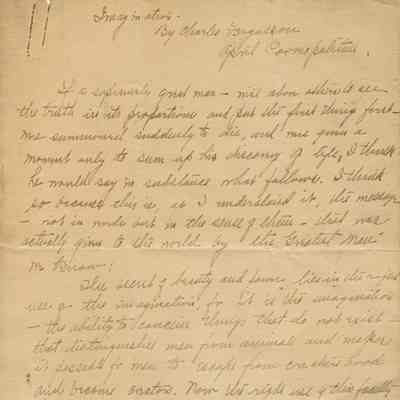 Imagination -
By Charles Ferguson
April Cosmopolitan.
If a supremely great man - one who is able to see
the truth in its proportions and put the first things first -
was summoned suddenly to die, and was given a
moment only to sum up his discovery of life, I think
he would say in substance what follows. I think
so because this is, as I understand it, the message
- not in words but in the sense of them - that was
actually given to the world by "the Greatest Man"
:
The secret of beauty and power lies in the right
use of the imagination, for it is the imagination
- the ability to conceive things that do not exist -
that distinguishes men from animals and makes
it possible for men to escape from creaturehood
and become creators. Now the right use of this faculty